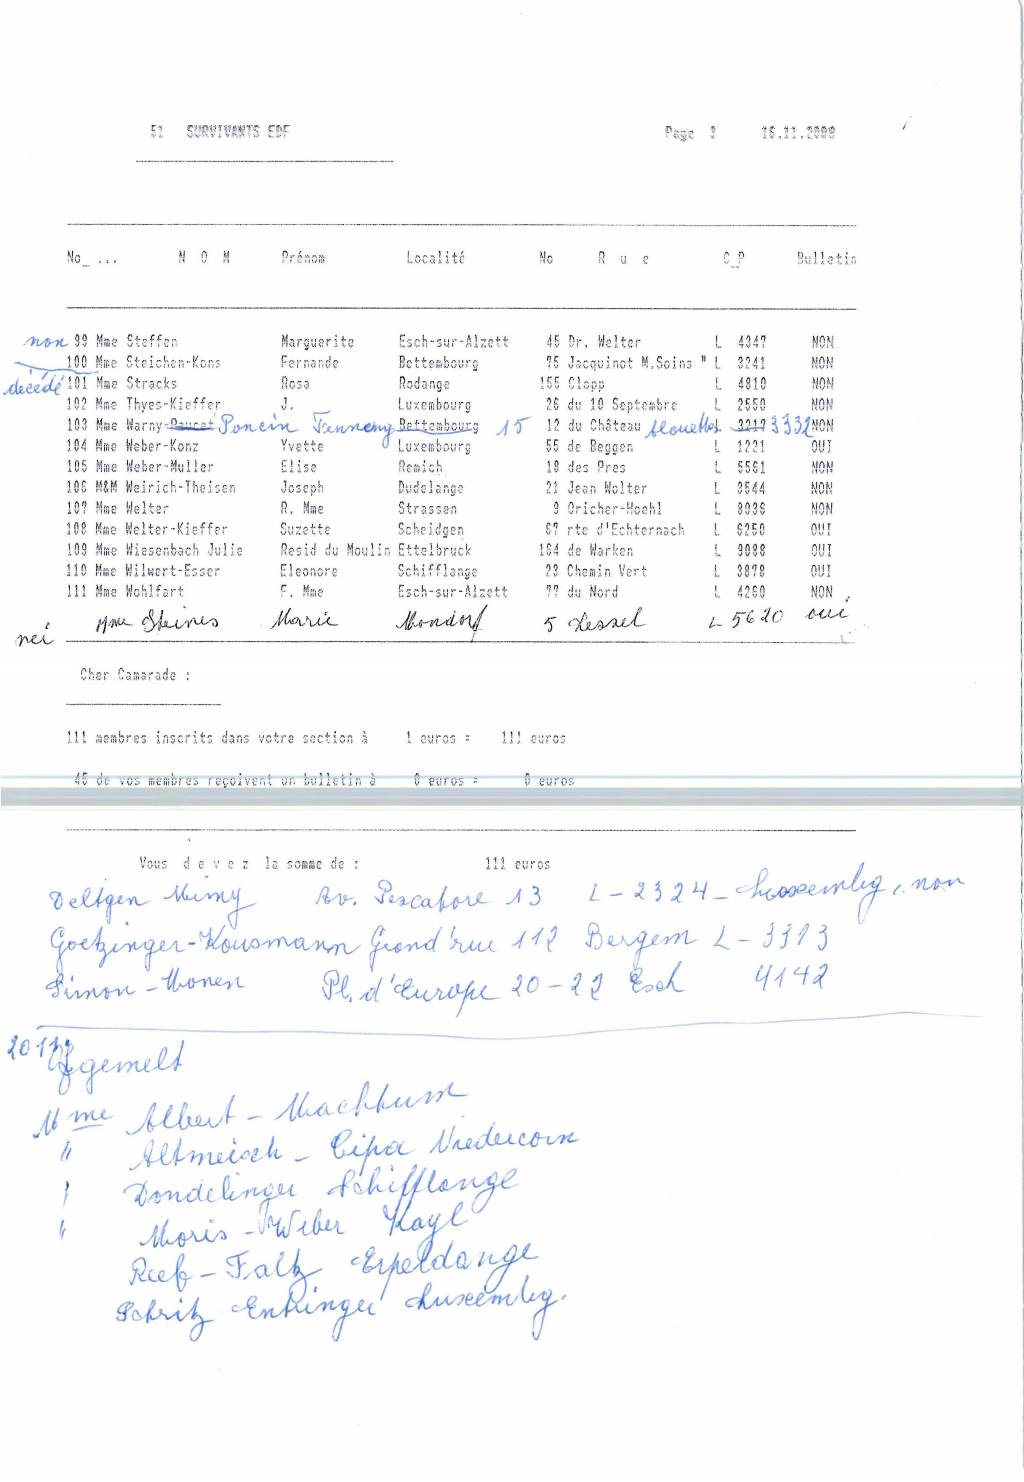 51 SURVIVANTS EDF Page 3 16.11.2009
No_ ... N O M Prénom Localité No R u e C_P Bulletin
non 99 Mme Steffen Marguerite Esch-sur-Alzett 45 Dr. Welter L 4347 NON
100 Mme Steichen-Kons Fernande Bettembourg 75 Jacquinot M.Soins " L 3241 NON
décédé 101 Mme Stracks Rosa Rodange 155 Clopp L 4810 NON
102 Mme Thyes-Kieffer J. Luxembourg 26 du 10 Septembre L 2550 NON
103 Mme Warny-Paucet Poncin Fennang Bettembourg 15 12 du Château Alouettes L 3217 3332 NON
104 Mme Weber-Konz Yvette Luxembourg 55 de Beggen L 1221 OUI
105 Mme Weber-Muller Elise Remich 18 des Pres L 5561 NON
106 M&M Weirich-Theisen Joseph Dudelange 21 Jean Wolter L 3544 NON
107 Mme Welter R. Mme Strassen 9 Oricher-Hoehl L 8036 NON
108 Mme Welter-Kieffer Suzette Scheidgen 67 rte d'Echternach L 6250 OUI
109 Mme Wiesenbach Julie Resid du Moulin Ettelbruck 164 de Warken L 9088 OUI
110 Mme Wilwert-Esser Eleonore Schifflange 23 Chemin Vert L 3878 OUI
111 Mme Wohlfart F. Mme Esch-sur-Alzett 77 du Nord L 4260 NON
nei Mme Steines Marie Mondorf 5 Lessel L 5620 oui
Cher Camarade :
111 membres inscrits dans votre section à 1 euros = 111 euros
45 de vos membres reçoivent un bulletin à 0 euros = 0 euros
Vous d e v e z la somme de : 111 euros
Deltgen Mimy Av. Pescatore 13 L-2324-Luxembg, non
Goetzinger-Kousmann Grand'rue 112 Bergem L-3313
Simon-Monen Pl. d'Europe 20-22 Esch 4142
Ofgemelt
Mme Albert-Machtum
" Altmeisch-Cipa Niedercorn
" Dondelinger Schifflange
" Moris-Weber Kayl
Reef-Faltz Erpeldange
Schritz Entringer Luxembg.